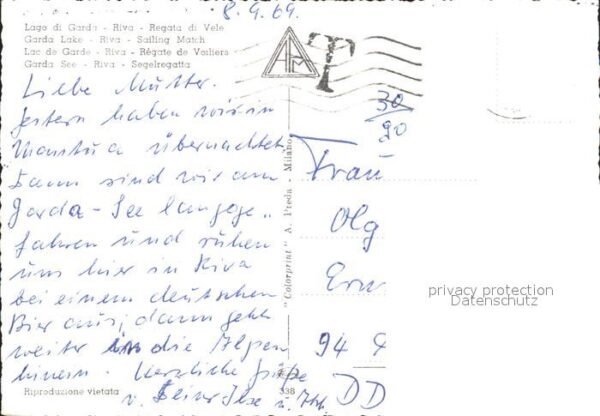 8.9.69.
Lago di Garda - Riva - Regata di Vele
Garda Lake - Riva - Sailing Match
Lac de Garde - Riva - Régate de Voiliers
Garda See - Riva - Segelregatta
Liebe Mutter.
Gestern haben wir in
Mantua übernachtet
Dann sind wir am
Garda-See langge..
fahren und ruhen
uns hier in Riva
bei einem deutschen
Bier aus, dann geht
weiter in die Alpen
hinein. Herzliche Grüße
v. Deiner Ilse u.
Riproduzione vietata
"Colorprint" A. Preda - Milano
338
T
30
90
Frau
Olg
Erw
94
DD
privacy protection
Datenschutz